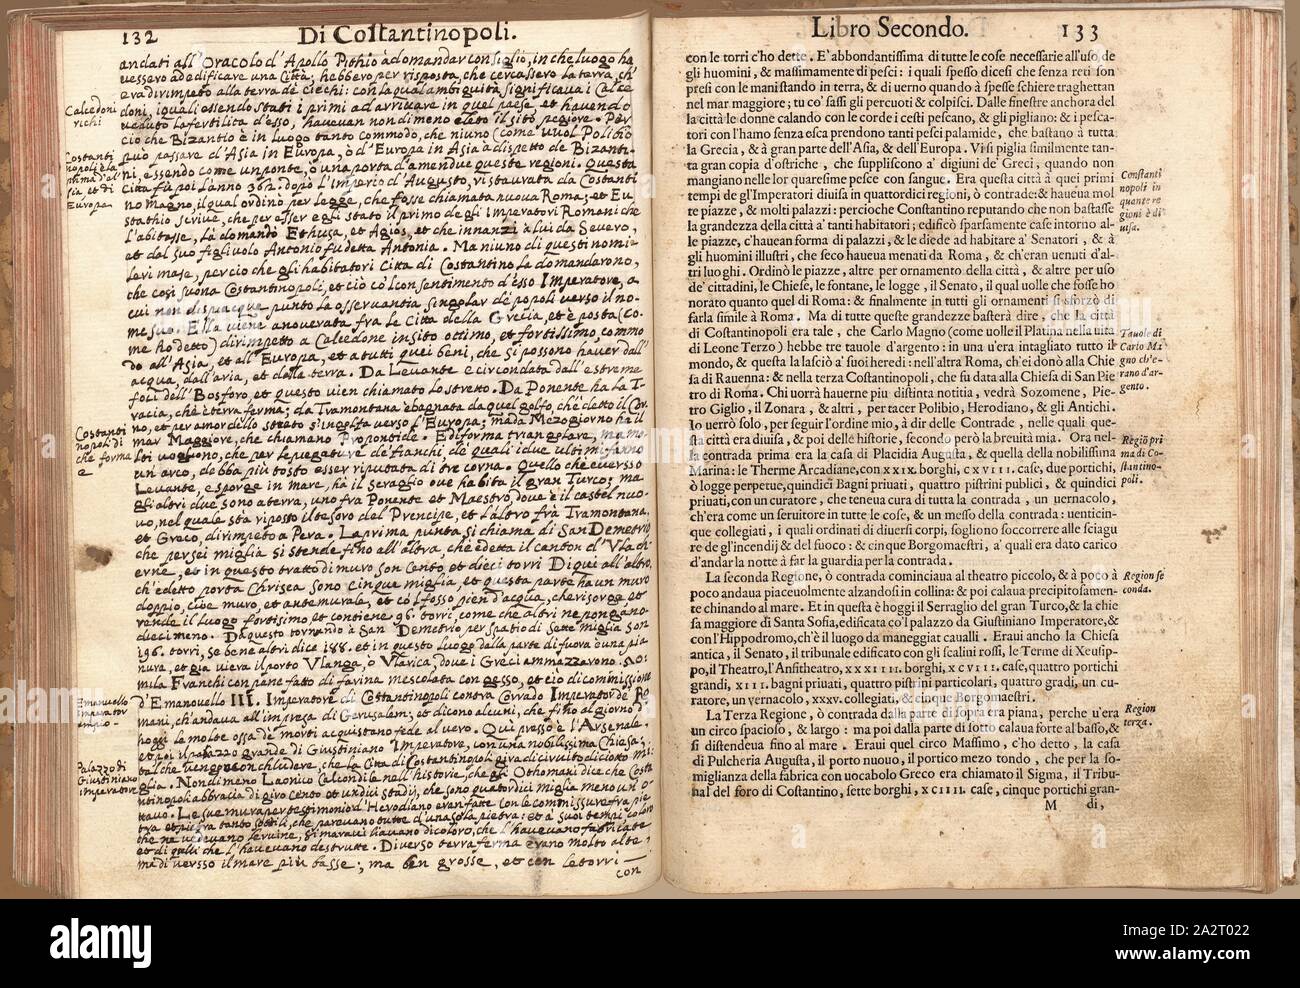 132 Di Costantinopoli.
andati all'Oracolo d'Apollo Pithio à domandar consiglio, in che luogo ha
vessero ad edificare una Città; hebbero per risposta, che cercassero la terra, ch'
era dirimpeto alla terra de ciechi: con laqual ambiguità significava i Calce
doni, iquali essendo stati i primi ad arrivare in quel paese, et havendo
veduto la fertilita d'esso, havevan nondimeno eleto il sito pegiore. Per
cio che Bizantio è in luogo tanto commodo, che niuno (come vuol Polibio
può passare d'Asia in Europa, ò d'Europa in Asia a dispetto de Bizanti-
ni, essendo come un ponte, ò una porta d'amendue queste regioni. Questa
Citta fu poi l'anno 362. dopò l'Imperio d'Augusto, ristaurata da Costanti
no Magno, il qual ordinò per legge, che fosse chiamata nuova Roma; et Eu
stathio scrive, che per esser egli stato il primo de gli Imperatori Romani che
l'abitasse, la domandò Ethusa, et Agios, et che innanzi à lui da Severo,
et dal suo figliuolo Antonio fu detta Antonia. Ma niuno di questi nomi
levi mase, percio che gli habitatori Citta di Costantino la domandarono,
che così suona Costantinopoli, et ciò col consentimento d'esso Imperatore, a
cui non dispiacque punto la osservantia singolar de popoli verso il no-
me suo. Ella viene anoverata fra le Città della Grecia, et è posta (co
me ho detto) dirimpetto a Calcedone in sito ottimo, et fortissimo, commo
do all'Asia, et all'Europa, et a tutti quei beni, che si possono haver dall'
acqua, dall'aria, et dalla terra. Da Levante è circondata dall'estreme
foci dell'Bosforo, et questo vien chiamato lo stretto. Da Ponente ha la T-
racia, che è terra ferma; da Tramontana è bagnata da quel golfo, ch'è detto il Cor
no, et per amor dello streto s'ingolfa verso l'Europa; ma da Mezogiorno ha il
mar Maggiore, che chiamano Propontide. E di forma triangolare, ma mo
lti vogliono, che per le pegature de fianchi, de quali i due ultimi fanno
un arco, debba più tosto esser riputata di tre corna. Quello che è verso
Levante, e sporge in mare, hà il seraglio ove habita il gran Turco; ma
gli altri due sono a terra, uno fra Ponente et Maestro, dove è il castel nuo-
vo, nel quale sta riposto il tesoro del Prencipe, et l'altro frà Tramontana,
et Greco, dirimpeto a Pera. La prima punta si chiama di San Demetrio
che per sei miglia si stende fino all'altra, ch'è detta il canton d'Vlach
erne, et in questo tratto di muro son cento, et dieci torri. Di qui all'altro,
ch'è detto porta Chrisea sono cinque miglia, et questa parte ha un muro
doppio, cioè muro, et antemurale, et col fosso pien d'acqua, che risorge et
rende il luogo fortisimo et contiene 96. torri, come che altri ne pongano
dieci meno. Da questo tornando à San Demetrio per spatio di sette miglia son
196. torri, se bene altri dice 188. et in questo luogo dalla parte di fuora è una pia
nura, et gia viera il porto Vlanga, ò Vlacica, dove i Greci ammazzarono 50.
mila Franchi con pane fatto di farina mescolata con gesso, et ciò di commissione
d'Emanouello III. Imperatore di Costantinopoli contra Corrado Imperator de Ro
mani, ch'andava all'impresa di Gerusalem; et dicono alcuni, che fino al giorno d'
hoggi le molte ossa de morti acquistano fede al vero. Qui presso è l'Arsenale,
et poi il palazzo grande di Giustiniano Imperatore, con una nobilissima Chiesa;
tal che vengo conchludere, che la Città di Costantinopoli gira di circuito diciotto mi:
glia. Nondimeno Laonico Calcondile nell'historie, che gli Othomani dice che Costa
ntinopoli abbraccia di giro cento et undici stadij, che sono quatordici miglia meno un o-
ttavo. Le sue mura per testimonio d'Herodiano eran fatte con le commissure fra pie
tra et pietra tanto sottili, che parevano tutte d'una sola pietra: et a suoi tempi coloro
che ne vedevano le ruine, si maravigliavano di coloro, che l'havevano fabricate
et di quelli che l'havevano destrutte. Di verso terra ferma erano molto alte,
ma di versso il mare più basse; ma ben grosse, et con le torri
con
Calcedoni
richi
Costanti
nopoli è la
prima d'A-
sia et di
Europa
Costanti
nopoli di
che forma
e
Emanuello
Imperator
Palazzo di
Giustiniano
Imperatore
Libro Secondo. 133
con le torri c'ho dette. E' abbondantissima di tutte le cose necessarie all'uso de
gli huomini, & massimamente di pesci: i quali spesso dicesi che senza reti son
presi con le mani stando in terra, & di uerno quando à spesse schiere traghettan
nel mar maggiore; tu co' sassi gli percuoti & colpisci. Dalle finestre anchora del
la città le donne calando con le corde i cesti pescano, & gli pigliano: & i pesca-
tori con l'hamo senza esca prendono tanti pesci palamide, che bastano à tutta
la Grecia, & à gran parte dell'Asia, & dell'Europa. Vi si piglia similmente tan-
ta gran copia d'ostriche, che suppliscono a' digiuni de' Greci, quando non
mangiano nelle lor quaresime pesce con sangue. Era questa città a quei primi
tempi de gl'Imperatori diuisa in quattordici regioni, ò contrade: & haueua mol
te piazze, & molti palazzi: percioche Constantino reputando che non bastasse
la grandezza della città a' tanti habitatori; edificò sparsamente case intorno al-
le piazze, c'hauean forma di palazzi, & le diede ad habitare a' Senatori, & à
gli huomini illustri, che seco haueua menati da Roma, & ch'eran uenuti d'al-
tri luoghi. Ordinò le piazze, altre per ornamento della città, & altre per uso
de' cittadini, le Chiese, le fontane, le logge, il Senato, il qual uolle che fosse ho
norato quanto quel di Roma: & finalmente in tutti gli ornamenti si sforzò di
farla simile à Roma. Ma di tutte queste grandezze basterà dire, che la città
di Costantinopoli era tale, che Carlo Magno (come uolle il Platina nella uita
di Leone Terzo) hebbe tre tauole d'argento: in una u'era intagliato tutto il
mondo, & questa la lasciò a' suoi heredi: nell'altra Roma, ch'ei donò alla Chie
sa di Rauenna: & nella terza Costantinopoli, che fu data alla Chiesa di San Pie
tro di Roma. Chi uorrà hauerne piu distinta notitia, vedrà Sozomene, Pie-
tro Giglio, il Zonara, & altri, per tacer Polibio, Herodiano, & gli Antichi.
Io uerrò solo, per seguir l'ordine mio, à dir delle Contrade, nelle quali que-
sta città era diuisa, & poi delle historie, secondo però la breuità mia. Ora nel-
la contrada prima era la casa di Placidia Augusta, & quella della nobilissima
Marina: le Therme Arcadiane, con XXIX. borghi, CXVIII. case, due portichi,
ò logge perpetue, quindici Bagni priuati, quattro pistrini publici, & quindici
priuati, con un curatore, che teneua cura di tutta la contrada, un uernacolo,
ch'era come un seruitore in tutte le cose, & un messo della contrada: uenticin-
que collegiati, i quali ordinati di diuersi corpi, sogliono soccorrere alle sciagu
re de gl'incendij & del fuoco: & cinque Borgomaestri, a' quali era dato carico
d'andar la notte à far la guardia per la contrada.
La seconda Regione, ò contrada cominciaua al theatro piccolo, & à poco à
poco andaua piaceuolmente alzandosi in collina: & poi calaua precipitosamen-
te chinando al mare. Et in questa è hoggi il Serraglio del gran Turco, & la chie
sa maggiore di Santa Sofia, edificata co'l palazzo da Giustiniano Imperatore, &
con l'Hippodromo, ch'è il luogo da maneggiar caualli. Eraui ancho la Chiesa
antica, il Senato, il tribunale edificato con gli scalini rossi, le Terme di Xeusip-
po, il Theatro, l'Anfitheatro, XXXIIII. borghi, XCVIII. case, quattro portichi
grandi, XIII. bagni priuati, quattro pistrini particolari, quattro gradi, un cu-
ratore, un vernacolo, XXXV. collegiati, & cinque Borgomaestri.
La Terza Regione, ò contrada dalla parte di sopra era piana, perche u'era
un circo spacioso, & largo: ma poi dalla parte di sotto calaua forte al basso, &
si distendeua fino al mare. Eraui quel circo Massimo, c'ho detto, la casa
di Pulcheria Augusta, il porto nuouo, il portico mezo tondo, che per la so-
miglianza della fabrica con uocabolo Greco era chiamato il Sigma, il Tribu-
nal del foro di Costantino, sette borghi, XCIIII. case, cinque portichi gran-
M di,
Constanti
nopoli in
quante re
gioni è di
uisa.
Tauole di
Carlo Ma
gno ch'e-
rano d'ar-
gento.
Regiō pri
ma di Co-
stantino-
poli.
Region se
conda.
Region
terza.
alamy
Image ID: 2A2T022
www.alamy.com